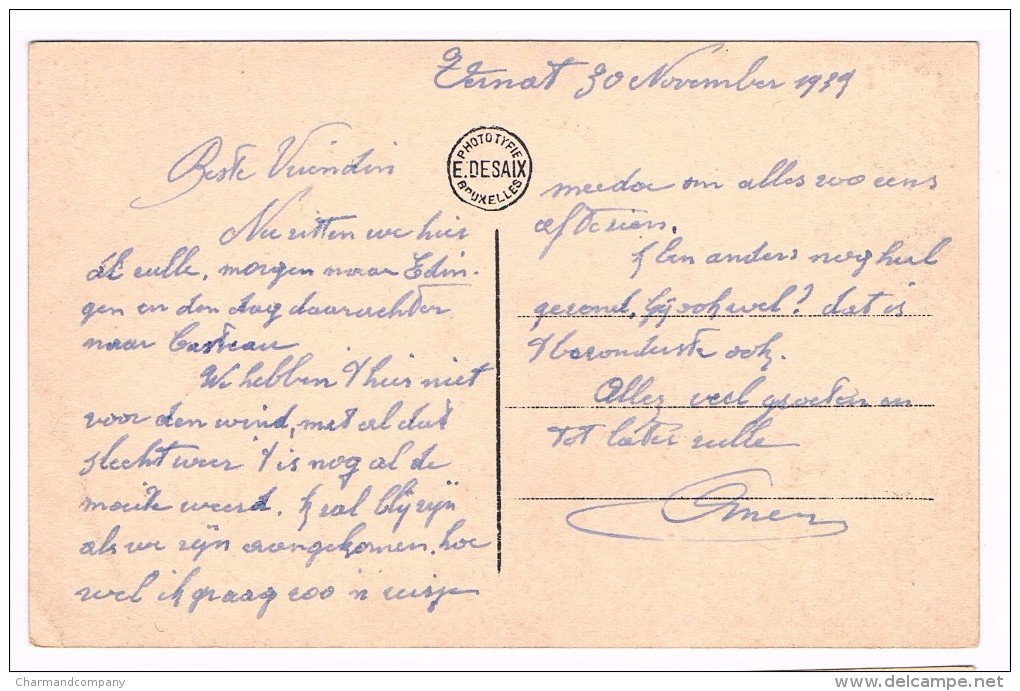 Ternat 30 November 1939
PHOTOTYPIE
E. DESAIX
BRUXELLES
Beste Vriendin
Nu zitten we hier
al zulle, morgen naar Edin-
gen en den dag daarachter
naar Casteau
We hebben 't hier niet
voor den wind, met al dat
slecht weer 't is nog al de
moeite weerd. 'k zal blij zijn
als we zijn aangekomen, hoe
wel ik graag zoo 'n reisje
meedoe om alles zoo eens
af te zien.
'k ben anders nog heel
gezond, Gij ook wel? dat is
't bezonderste ook.
Allez veel groeten en
tot later zulle
Charmandcompany
delcampe.net